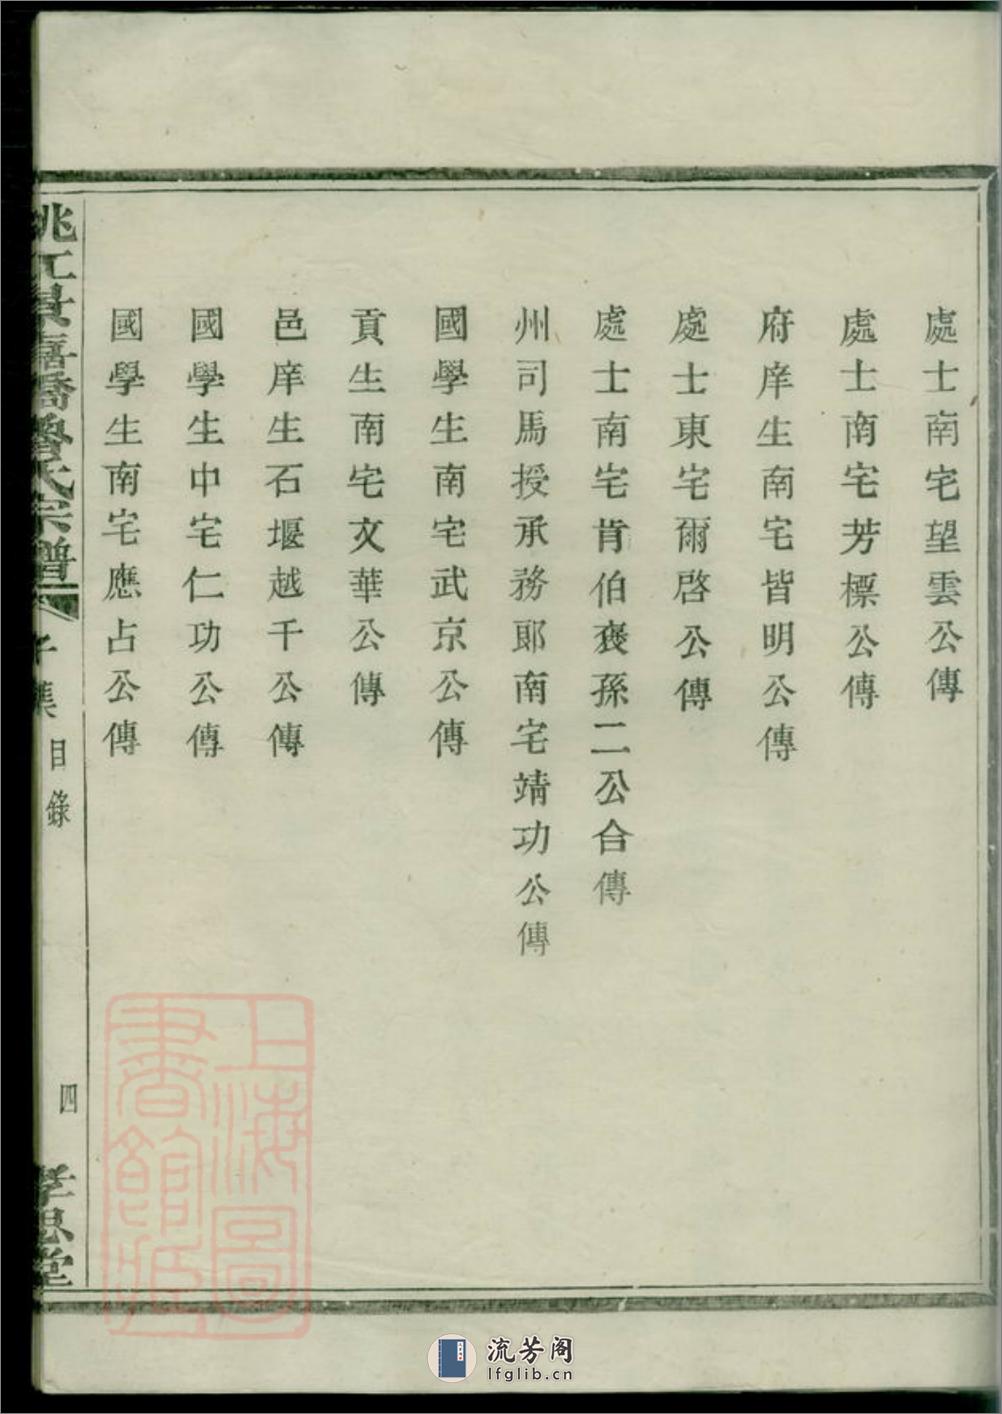 處士南宅望雲公傳
處士南宅芳標公傳
府庠生南宅皆明公傳
處士東宅爾啓公傳
處士南宅肯伯褒孫二公合傳
州司馬授承務郞南宅靖功公傳
國學生南宅武京公傳
貢生南宅文華公傳
邑庠生石堰越千公傳
國學生中宅仁功公傳
國學生南宅應占公傳
姚江景嘉橋魯氏宗譜
子集
目錄
四
孝思堂
上海圖書館藏
流芳阁
lfglib.cn